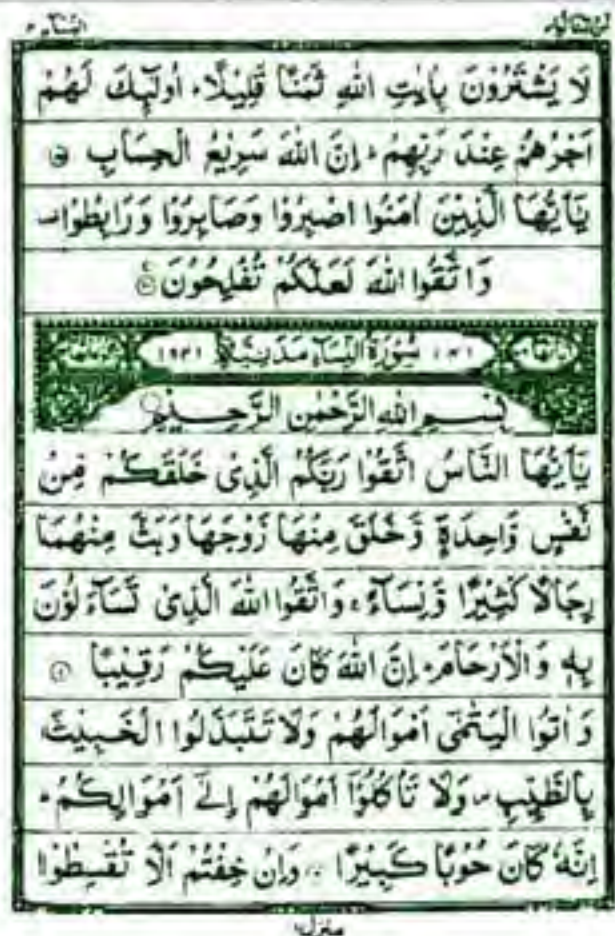 لن تنالوا ٤
النسآء ٤
لَا يَشْتَرُوْنَ بِاٰيٰتِ اللّٰهِ ثَمَنًا قَلِيْلًا ؕ اُولٰٓئِكَ لَهُمْ
اَجْرُهُمْ عِنْدَ رَبِّهِمْ ؕ اِنَّ اللّٰهَ سَرِيْعُ الْحِسَابِ
يٰۤاَيُّهَا الَّذِيْنَ اٰمَنُوا اصْبِرُوْا وَصَابِرُوْا وَرَابِطُوْا
وَاتَّقُوا اللّٰهَ لَعَلَّكُمْ تُفْلِحُوْنَ
سُوْرَةُ النِّسَآءِ مَدَنِيَّةٌ
بِسْمِ اللّٰهِ الرَّحْمٰنِ الرَّحِيْمِ
يٰۤاَيُّهَا النَّاسُ اتَّقُوْا رَبَّكُمُ الَّذِيْ خَلَقَكُمْ مِّنْ
نَّفْسٍ وَّاحِدَةٍ وَّخَلَقَ مِنْهَا زَوْجَهَا وَبَثَّ مِنْهُمَا
رِجَالًا كَثِيْرًا وَّنِسَآءً ۚ وَاتَّقُوا اللّٰهَ الَّذِيْ تَسَآءَلُوْنَ
بِهٖ وَالْاَرْحَامَ ؕ اِنَّ اللّٰهَ كَانَ عَلَيْكُمْ رَقِيْبًا ①
وَاٰتُوا الْيَتٰمٰۤى اَمْوَالَهُمْ وَلَا تَتَبَدَّلُوا الْخَبِيْثَ
بِالطَّيِّبِ ۪ وَلَا تَاْكُلُوْۤا اَمْوَالَهُمْ اِلٰٓى اَمْوَالِكُمْ ؕ
اِنَّهٗ كَانَ حُوْبًا كَبِيْرًا وَاِنْ خِفْتُمْ اَلَّا تُقْسِطُوْا
منزل ١